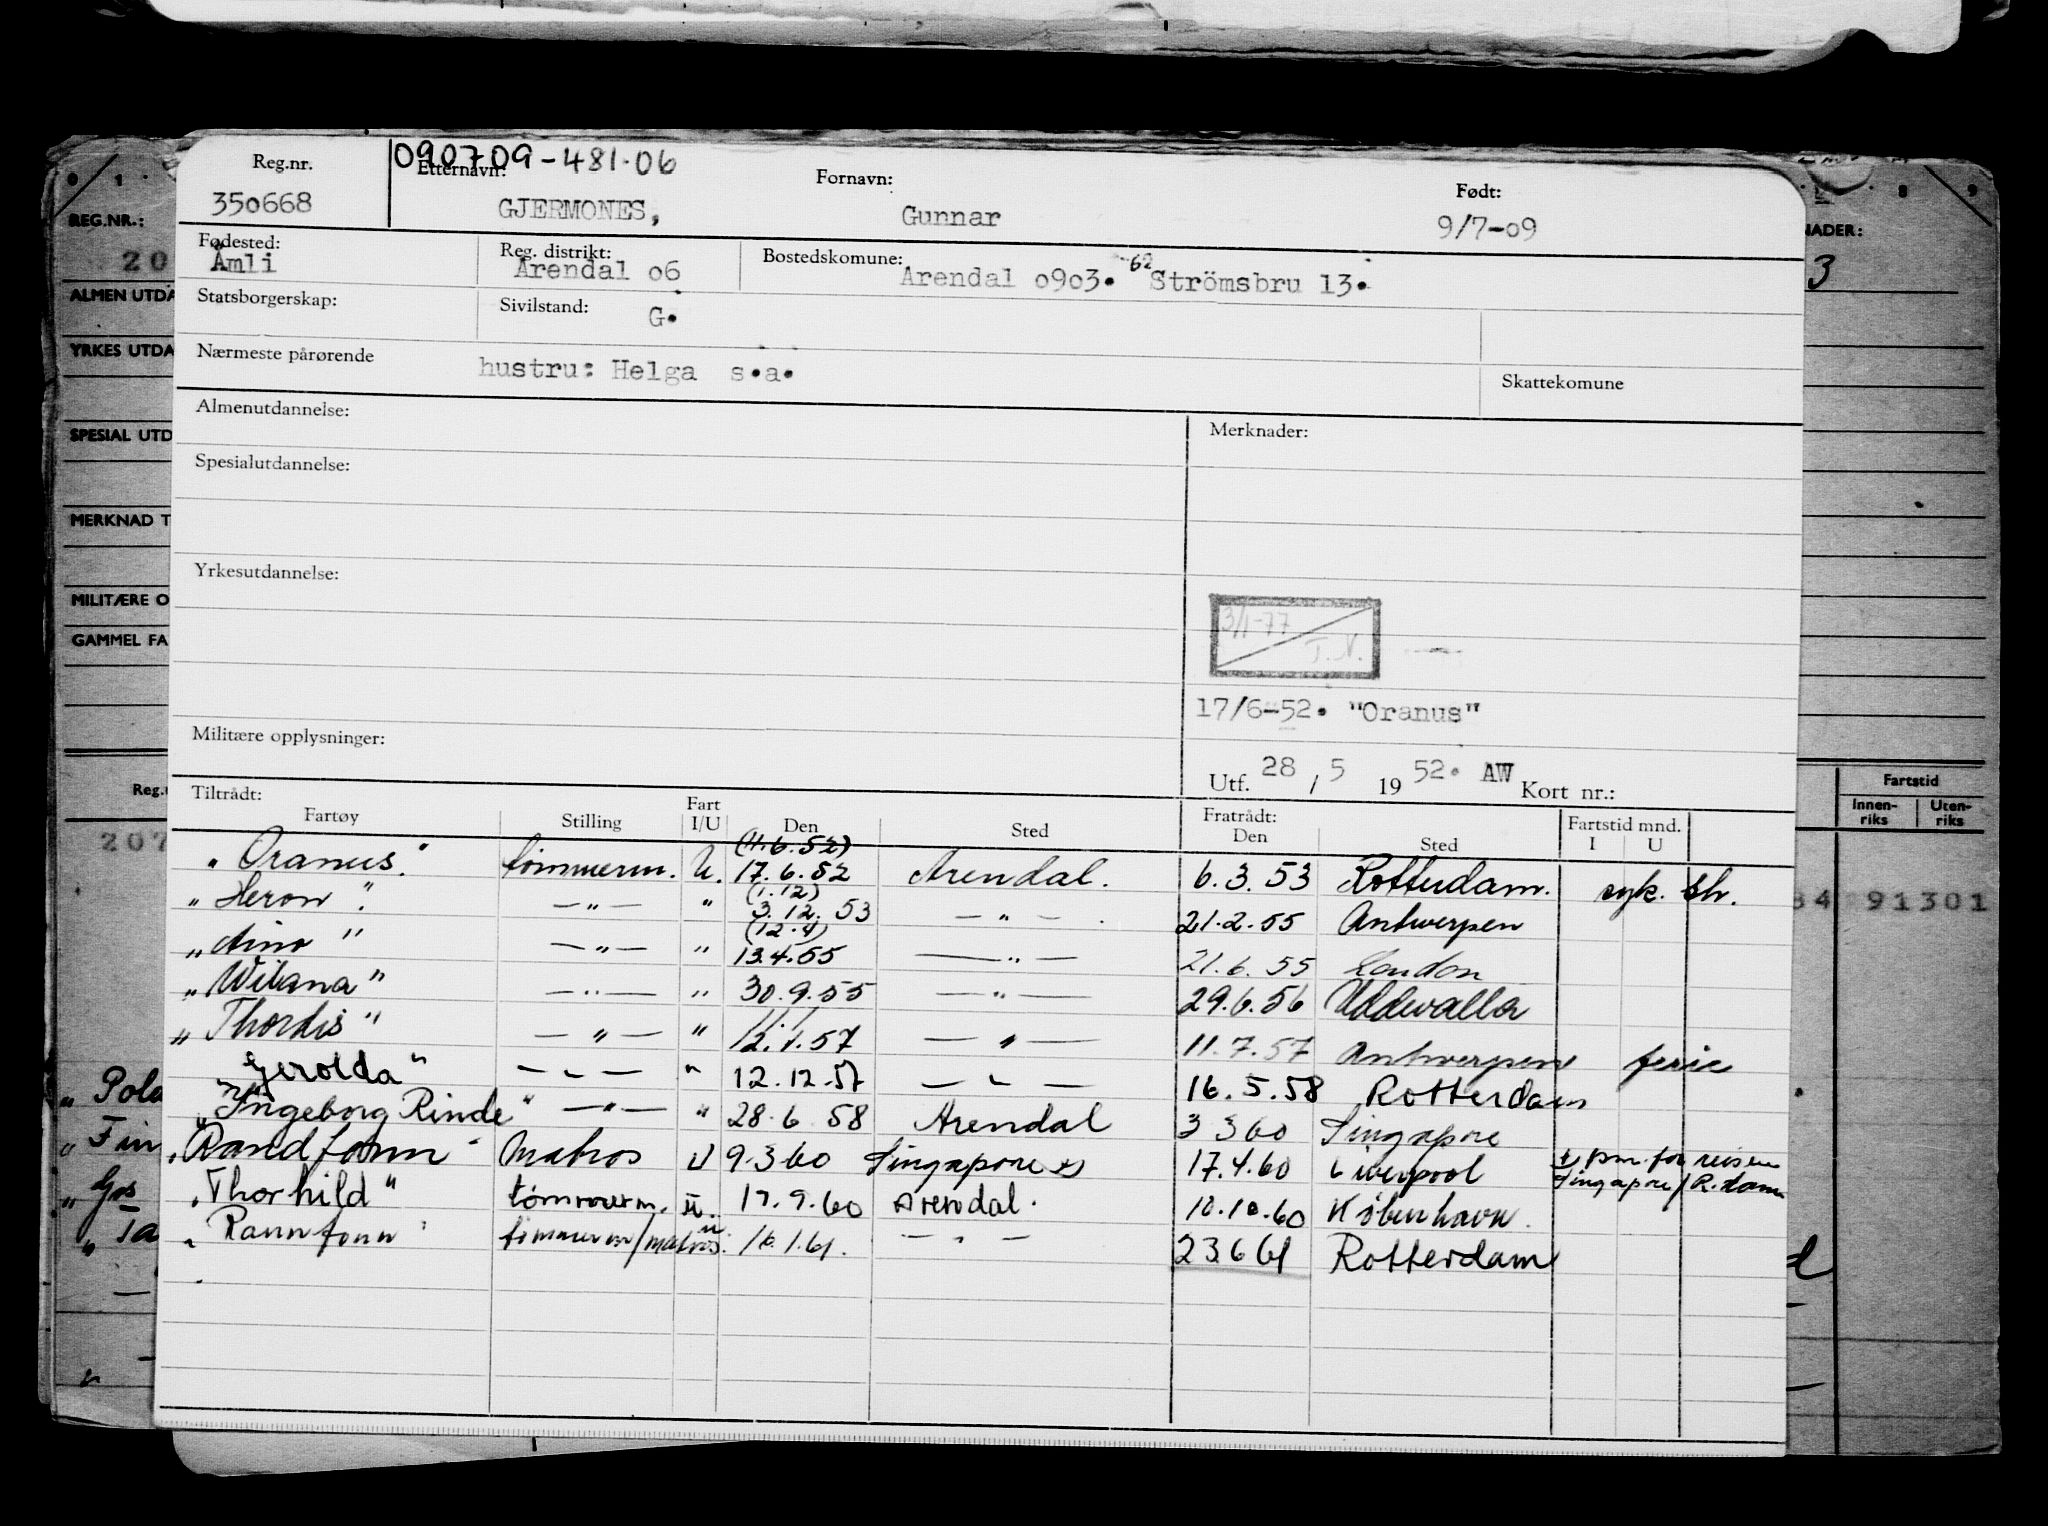 090709-481.06
Reg.nr. Etternavn: Fornavn: Født:
350668 GJERMONES, Gunnar 9/7-09
Fødested: Reg. distrikt: Bostedskomune:
Åmli Arendal 06 Arendal 0903. 62 Strömsbru 13.
Statsborgerskap: Sivilstand: G.
Nærmeste pårørende hustru: Helga s.a. Skattekomune
Almenutdannelse: Merknader:
Spesialutdannelse:
Yrkesutdannelse:
3/1-77
T.N.
17/6-52. "Oranus"
Militære opplysninger:
Utf. 28 / 5 19 52. AW Kort nr.:
Tiltrådt: Fratrådt: Fartstid mnd.
Fartøy Stilling Fart I/U Den Sted Den Sted I U
(11.6.52)
"Oranus." tømmerm. U. 17.6.52 Arendal. 6.3.53 Rotterdam. syk.
(1.12)
"Heron". —"— " 3.12.53 —"— 21.2.55 Antwerpen
(12.4)
"Aino" —"— " 13.4.55 —"— 21.6.55 London
"Wilana" —"— " 30.9.55 —"— 29.6.56 Uddevalla
"Thordis" —"— " 12.1.57 —"— 11.7.57 Antwerpen ferie
"Gerolda" —"— " 12.12.57 —"— 16.5.58 Rotterdam
"Ingeborg Rinde" —"— " 28.6.58 Arendal 3 3 60 Singapore
"Randfonn" Matros U 9.3.60 Singapore x) 17.4.60 Liverpool x) for reisen
Singapore/R.dam
"Thorhild" tømmerm. U. 17.9.60 Arendal. 10.10.60 København.
"Rannfonn" tømmerm/matros. U 16.1.61. —"— 23 6 61 Rotterdam
REG.NR.:
20
ALMEN UTDA
YRKES UTDA
SPESIAL UTD
MERKNAD T
MILITÆRE O
GAMMEL FA
Reg.
207
" Pola
" Fin
" Gos
" Ta
NADER:
3
8 9
Fartstid
Innen-riks Uten-riks
84 91301
d